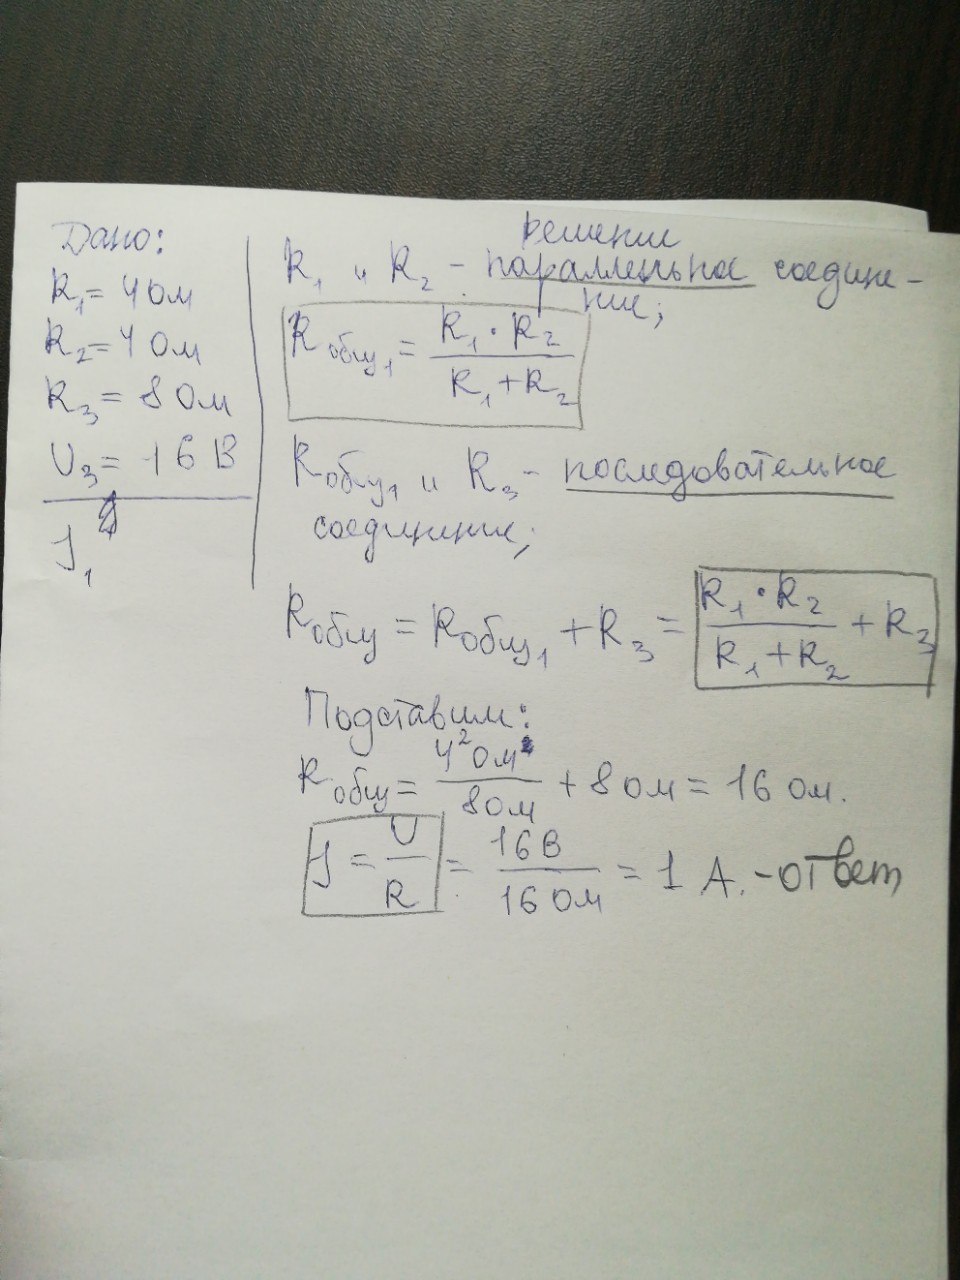 Дано:
R₁ = 4 Ом
R₂ = 4 Ом
R₃ = 8 Ом
U₃ = 16 В
J₁
решение
R₁ и R₂ - параллельное соедине-
ние;
Rобщ₁ = R₁ · R₂ / R₁ + R₂
Rобщ₁ и R₃ - последовательное
соединение;
Rобщ = Rобщ₁ + R₃ = R₁ · R₂ / R₁ + R₂ + R₃
Подставим:
Rобщ = 4² Ом² / 8 Ом + 8 Ом = 16 Ом.
J = U / R = 16 В / 16 Ом = 1 А. - ответ